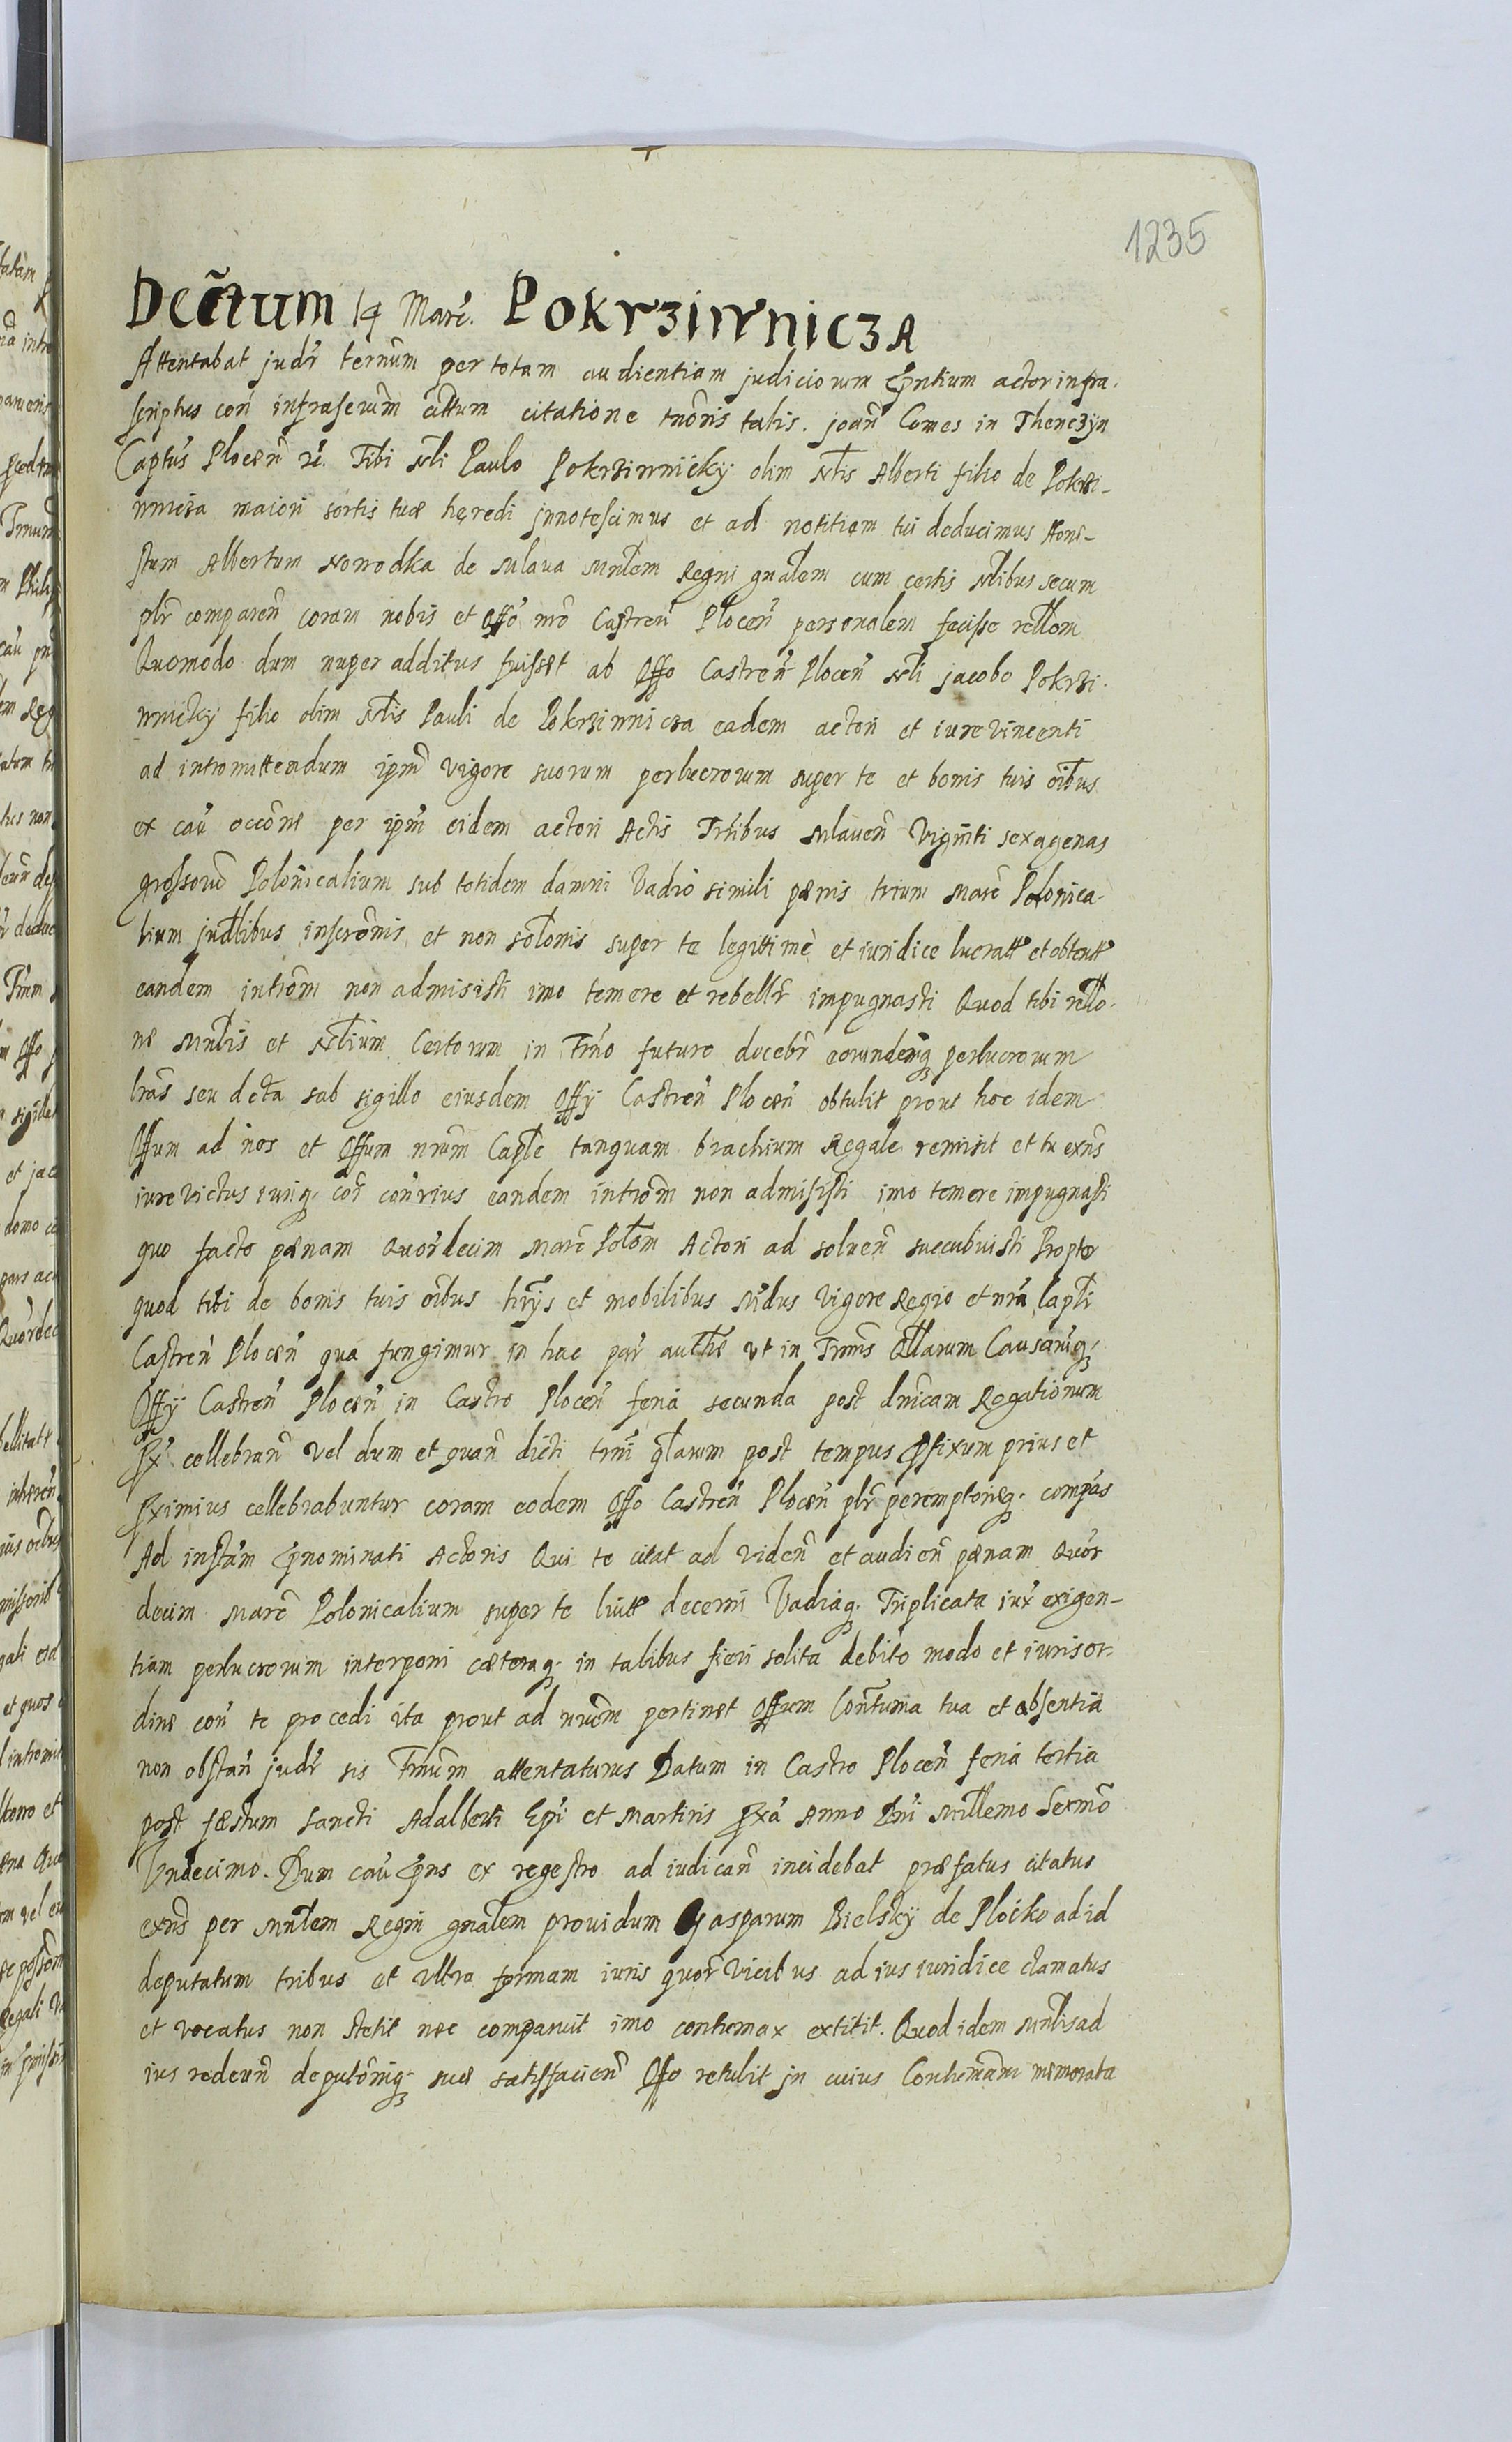 1235
Dec̃tum 14 Marc̃. Pokrziwnicza
Attentabat judr̃ ternũm per totam audientiam judiciorum p̃ntium actor infra-
scriptus coñ infrascrũm cittum citatione tnõris talis. joañ Comes in Thenczÿn
Captũs Plocen̄ etc̃. Tibi Nłi Paulo Pokrziwnićkÿ olim Nłis Alberti filio de Pokrzi-
wnicza maiori sortis tuæ hęredi jnnotescimus et ad notitiam tui deducimus Hone-
stum Albertum Nowodka de Mlava Mnłem Regni gnałem cum certis Nłibus secum
plr̃ comparen̄ coram nobis et Offõ nrõ Castren̄ Plocen̄ personalem fecisse rełłem
Quomodo dum nuper additus fuisset ab Offo Castren̄ Plocen̄ Nłi jacobo Pokrzi-
wnickÿ filio olim Nłis Pauli de Pokrziwnicza eadem actori et iurevincenti
ad intromittendum ipm̃ vigore suorum perlucrorum super te et bonis tuis oĩbus
ex caũ occõne per ipm̃ eidem actori Actis Trĩbus Mlaven̄ Viginti sexagenas
grossorũ Polonicalium sub totidem damni Vadio simili pænis trium Marc̃ Polonica-
lium judłibus inscrõnis et non solõnis super te legittimè et iuridice lucratt et obtentt
eandem introm̃ non admisisti imo temere et rebellr̃ impugnasti Quod tibi rełło-
ne Mnłis et Nłium Certorum in Trño futuro docebr̃ eorundemq3 perlucrorum
lrãs seu dcta sub sigillo eiusdem Offÿ Castren̄ Plocen̄ obtulit prout hoc idem
Offum ad nos et Offum nrũm Capłe tanquam brachium Regale remisit et tu exñs
iurevictus iuriq3 coĩ conĩrius eandem introm̃ non admisisti imo temere impugnasti
quo facto pænam Quordecim Marc̃ Polõm Actori ad solven̄ succubuisti Propter
quod tibi de bonis tuis oĩbus hrÿs et mobilibus Mdus Vigore Regio et nrã Capłi
Castren̄ Plocen̄ qua fungimur in hac par̃ authe ut in Trmis Qłłarum Causarũq3
Offÿ Castren̄ Plocen̄ in Castro Plocen̄ feria secunda post dnĩcam Rogationum
Px̃ cellebran̄ vel dum et quan̄ dicti trm̃i qłarum post tempus p̃fixum prius et
p̃ximius cellebrabuntur coram eodem Offo Castren̄ Plocen̄ plr̃ peremptorieq3 compãs
Ad instãm p̃nominati Actoris Qui te citat ad viden̄ et audien̄ pænam Quor
decim Marc̃ Polonicalium super te luitt decerni Vadiaq3 Triplicata iux̃ exigen-
tiam perlucrorum interponi cæteraq3 in talibus fieri solita debito modo et iuris or-
dine coñ te procedi ita prout ad nrũm pertinet Offum Contuma tua et absentia
non obstan̄ judr̃ sis Trnũm attentaturus Datum in Castro Plocen̄ feria tertia
post fæstum sancti Adalberti Epĩ et Martiris Px̃a Anno Dni Millemo Sexmõ
Vndecimo. Dum caũ p̃ns ex regestro ad iudican̄ incidebat præfatus citatus
exñs per Mnłem Regni gnałem providum Gasparum Bielskÿ de Ploćko ad id
deputatum tribus et ultra formam iuris quor̃ vicibus ad ius iuridice clamatus
et vocatus non stetit nec comparuit imo contumax extitit. Quod idem Mnłis ad
ius redeun̄ deputõniq3 suæ satisfacien̄ Offo retulit jn cuius Contumãm memorata